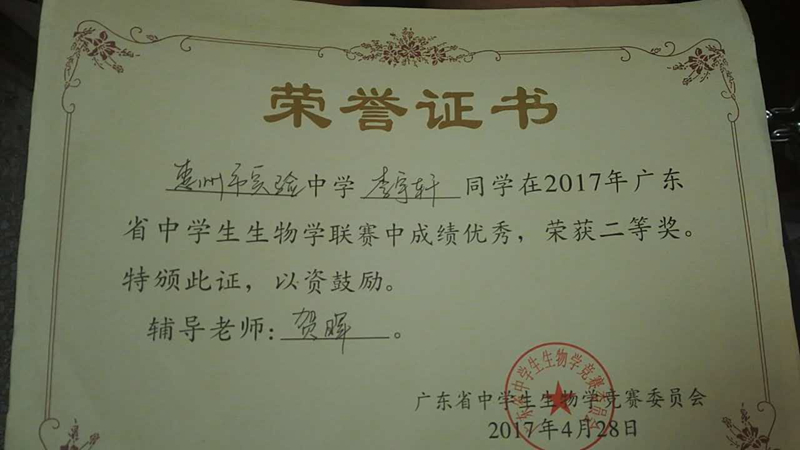 荣誉证书
惠州市实验中学 李宇轩 同学在2017年广东
省中学生生物学联赛中成绩优秀，荣获二等奖。
特颁此证，以资鼓励。
辅导老师：贺晖。
广东省中学生生物学竞赛委员会
2017年4月28日